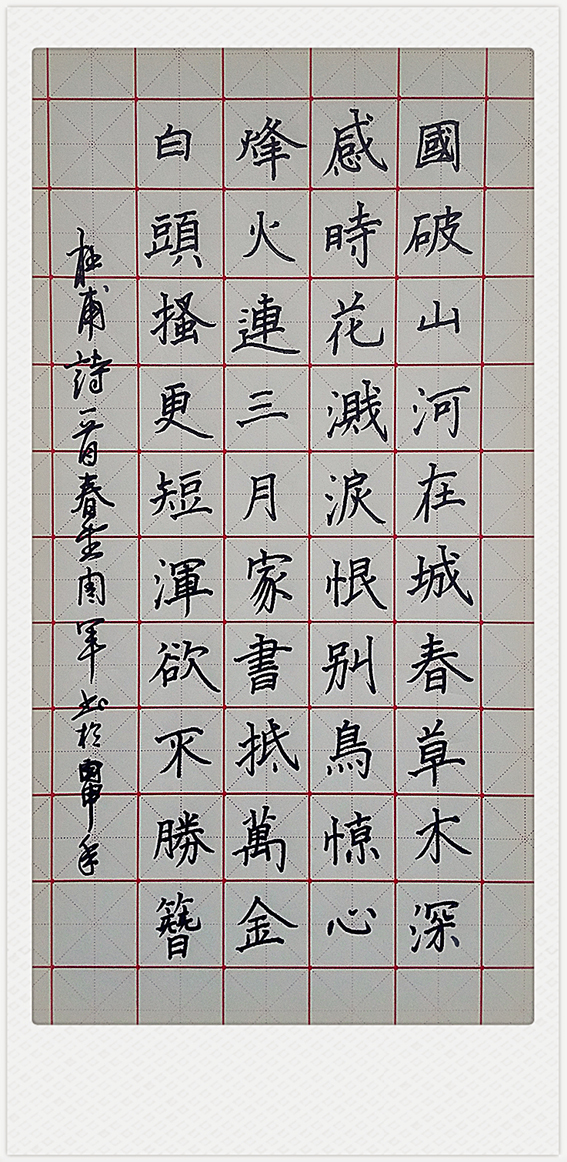 國破山河在城春草木深
感時花濺淚恨别鳥惊心
烽火連三月家書抵萬金
白頭搔更短渾欲不勝簪
杜甫詩一首春望周军书於丙申年